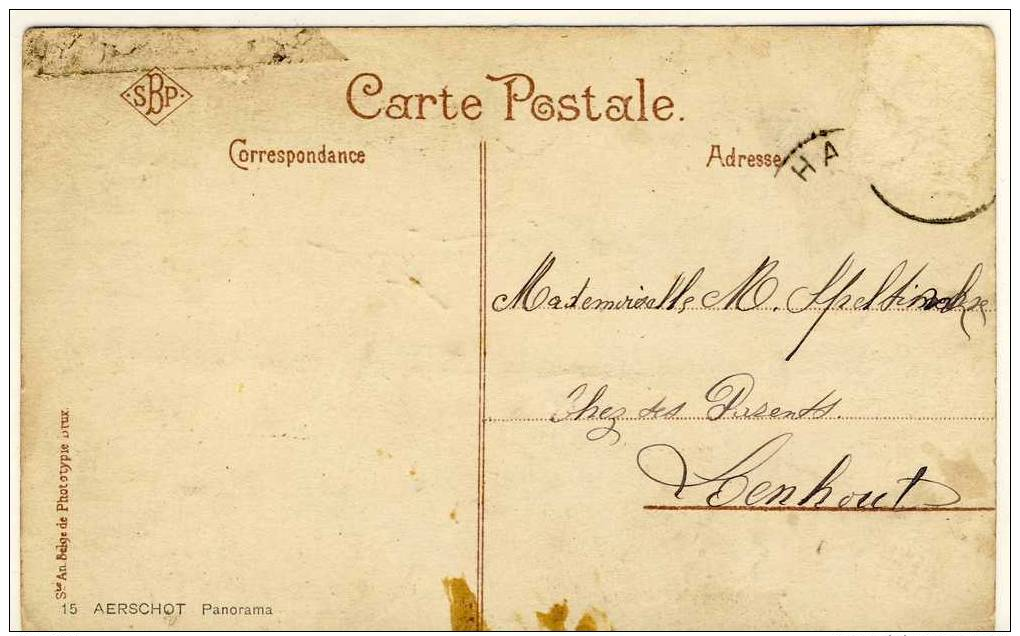 SBP
Carte Postale.
Correspondance
Adresse
HA
Mademoiselle M.
Chez ses Parents.
Sté An. Belge de Phototypie Brux.
15 AERSCHOT Panorama